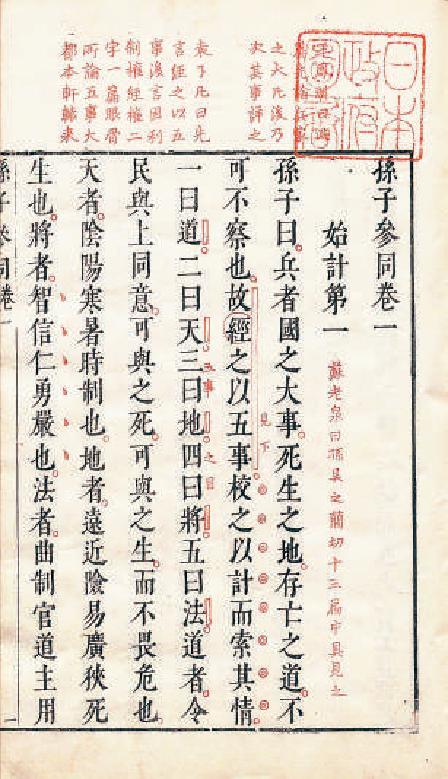 孫子參同卷一
始計第一
蘇老泉曰孫吳之簡切十三篇中具見之
孫子曰兵者國之大事死生之地存亡之道不
可不察也故經之以五事校之以計而索其情
見下
一曰道二曰天三曰地四曰將五曰法道者令
五事之目
民與上同意可與之死可與之生而不畏危也
天者陰陽寒暑時制也地者遠近險易廣狹死
生也將者智信仁勇嚴也法者曲制官道主用
孫子參同卷一
之大凡後乃
次其事評之
袁了凡曰先
言經之以五
事後言因利
制權經權二
字一篇眼眉
所論五事大
都本軒歸來
日本
政府